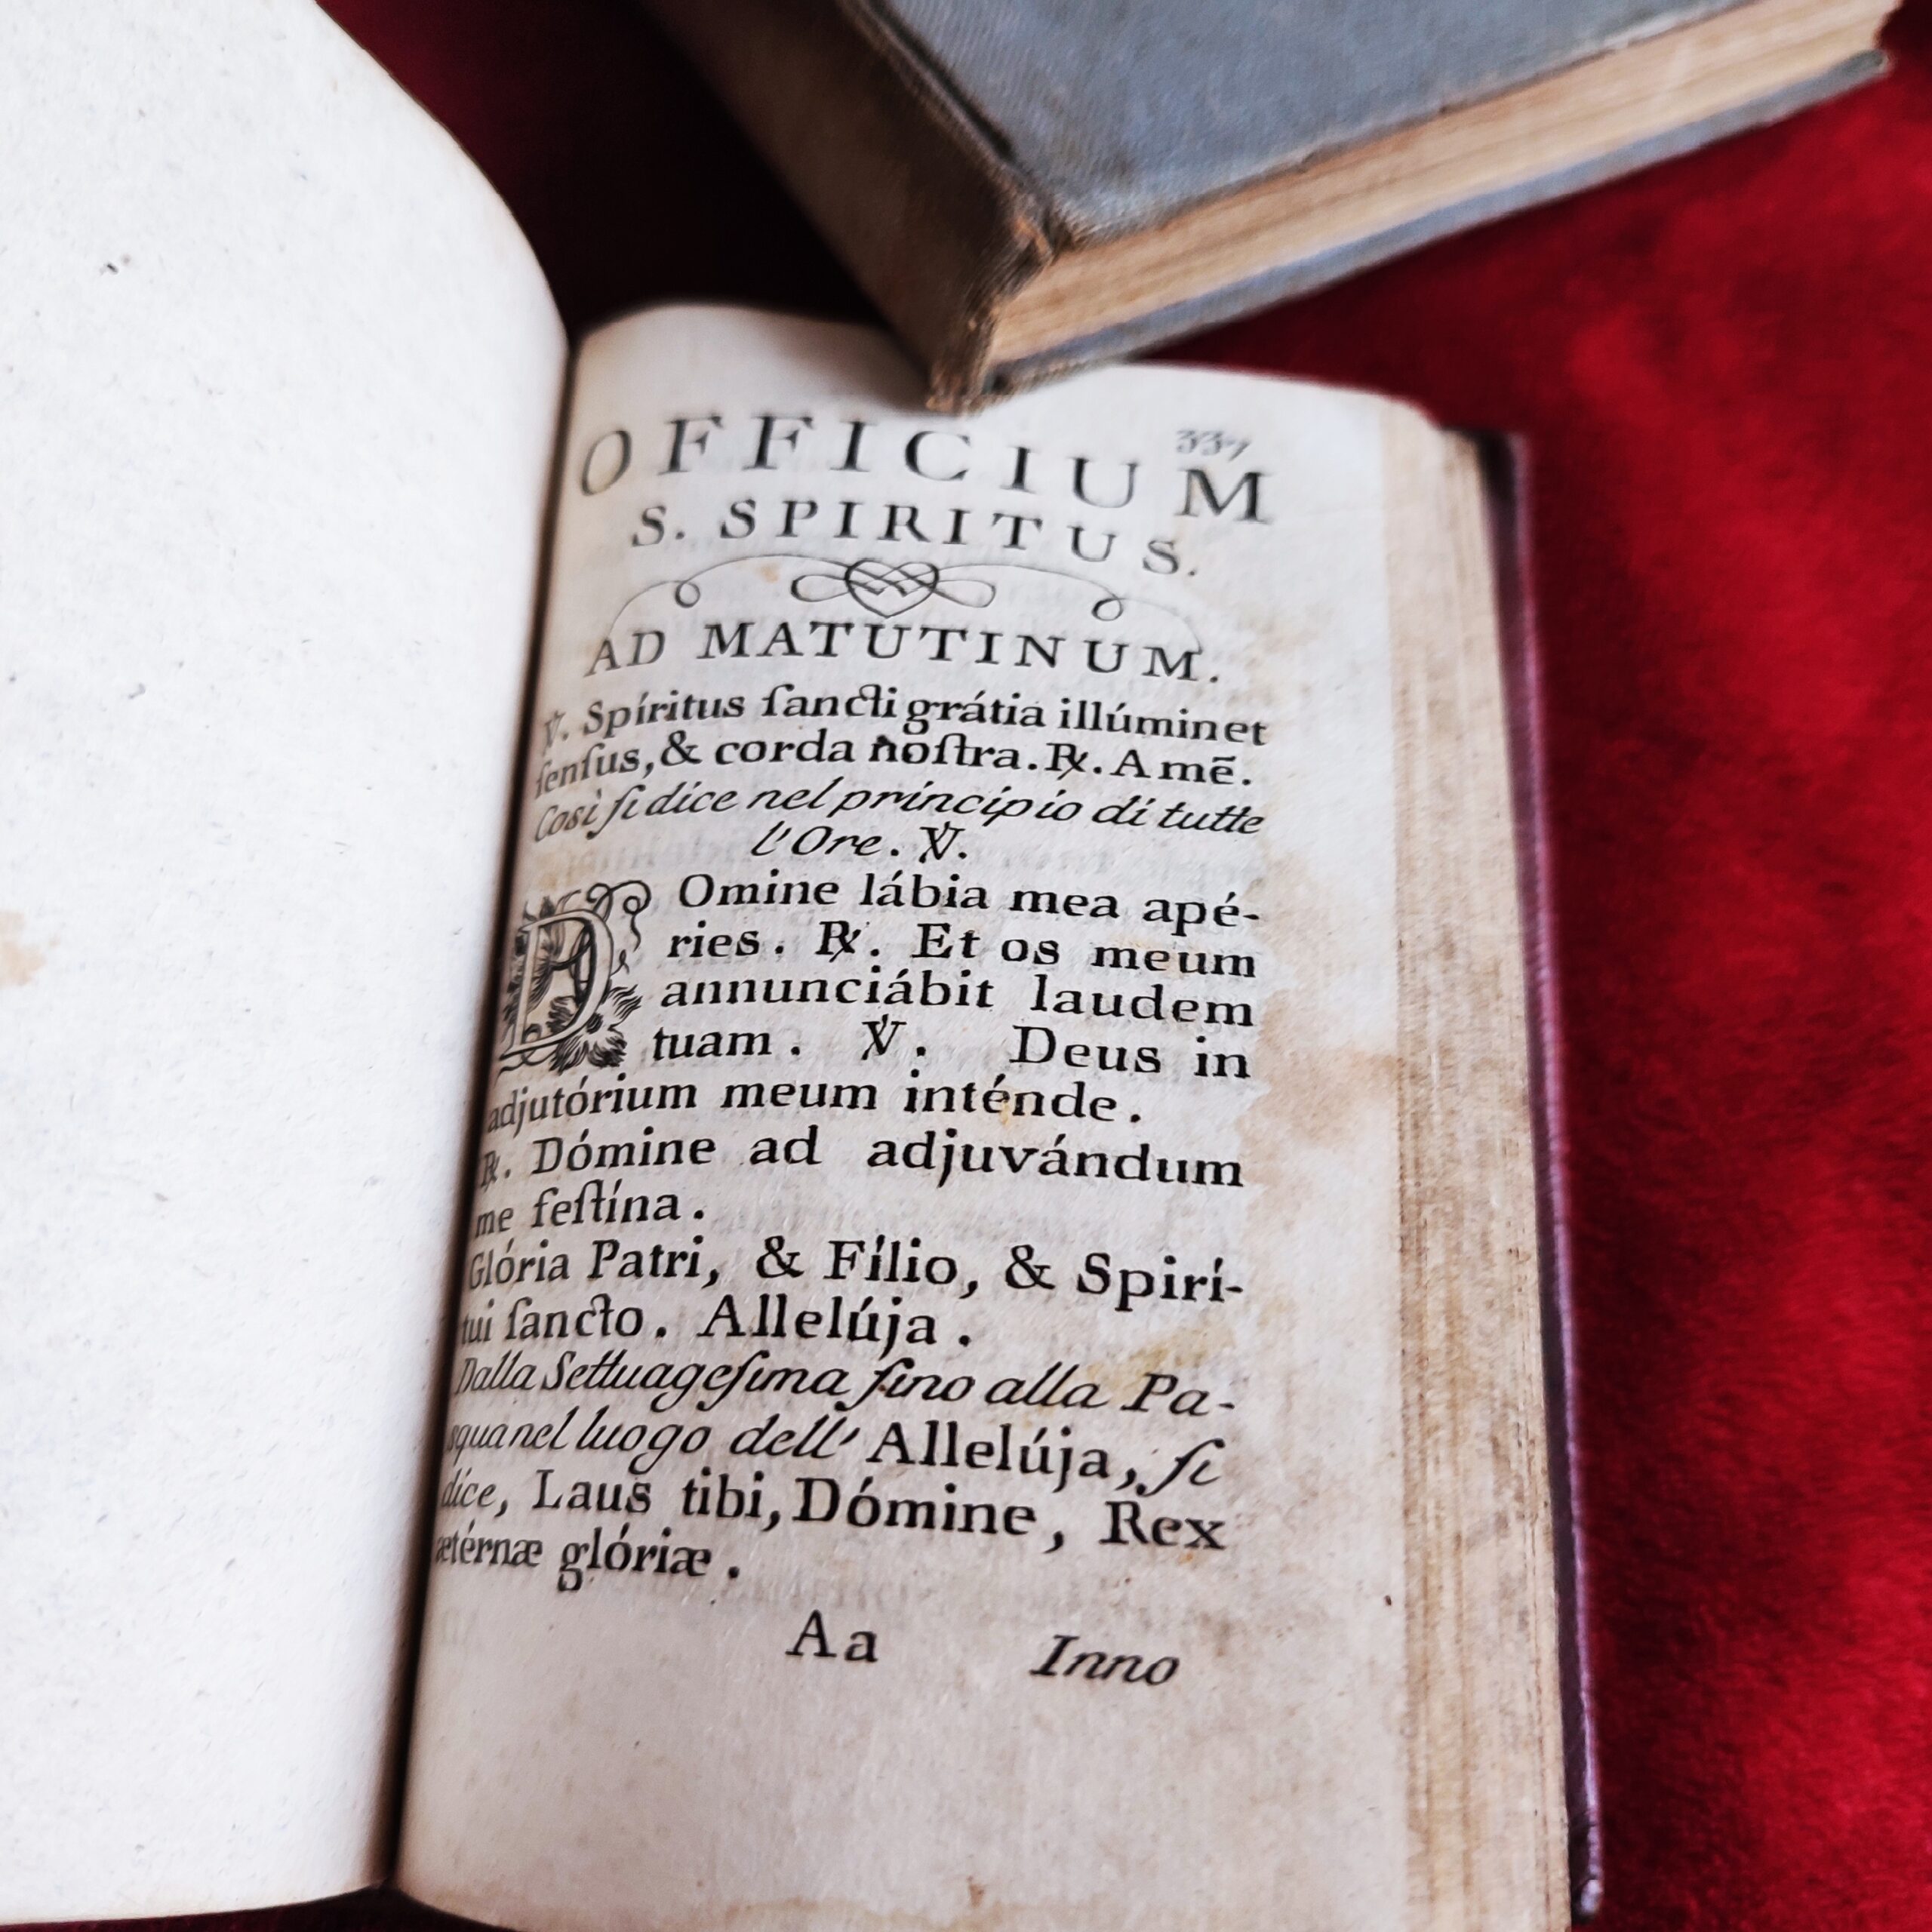 337
OFFICIUM
S. SPIRITUS.
AD MATUTINUM.
℣. Spíritus ſancti grátia illúminet
ſenſus, & corda noſtra. ℟. Amē.
Così ſi dice nel principio di tutte
l'Ore. ℣.
DOmine lábia mea apé-
ries. ℟. Et os meum
annunciábit laudem
tuam. ℣. Deus in
adjutórium meum inténde.
℟. Dómine ad adjuvándum
me feſtína.
Glória Patri, & Fílio, & Spirí-
tui ſancto. Allelúja.
Dalla Settuageſima ſino alla Pa-
squa nel luogo dell' Allelúja, ſi
dice, Laus tibi, Dómine, Rex
ætérnæ glóriæ.
Aa Inno